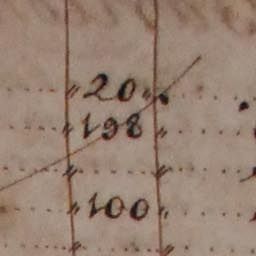 " 20 "
" 198 "
" "
" 100 "
" "